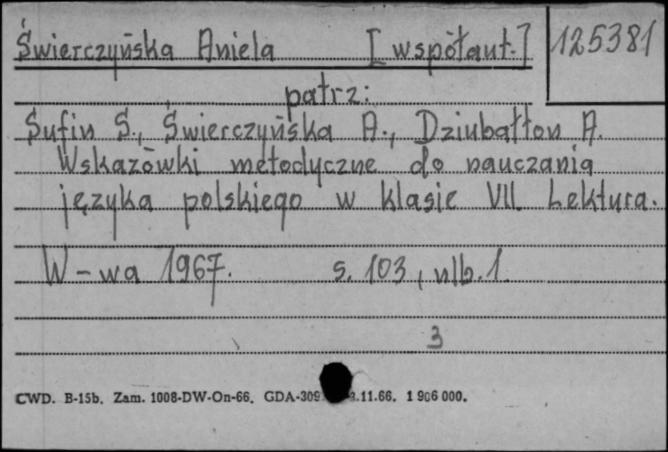 Świerczyńska Aniela [współaut.] 125381
patrz:
Sufin S., Świerczyńska A., Dziubałton A.
Wskazówki metodyczne do nauczania
języka polskiego w klasie VII. Lektura.
W-wa 1967. s. 103, nlb. 1.
3
CWD. B-15b. Zam. 1008-DW-On-66. GDA-309 .11.66. 1 906 000.